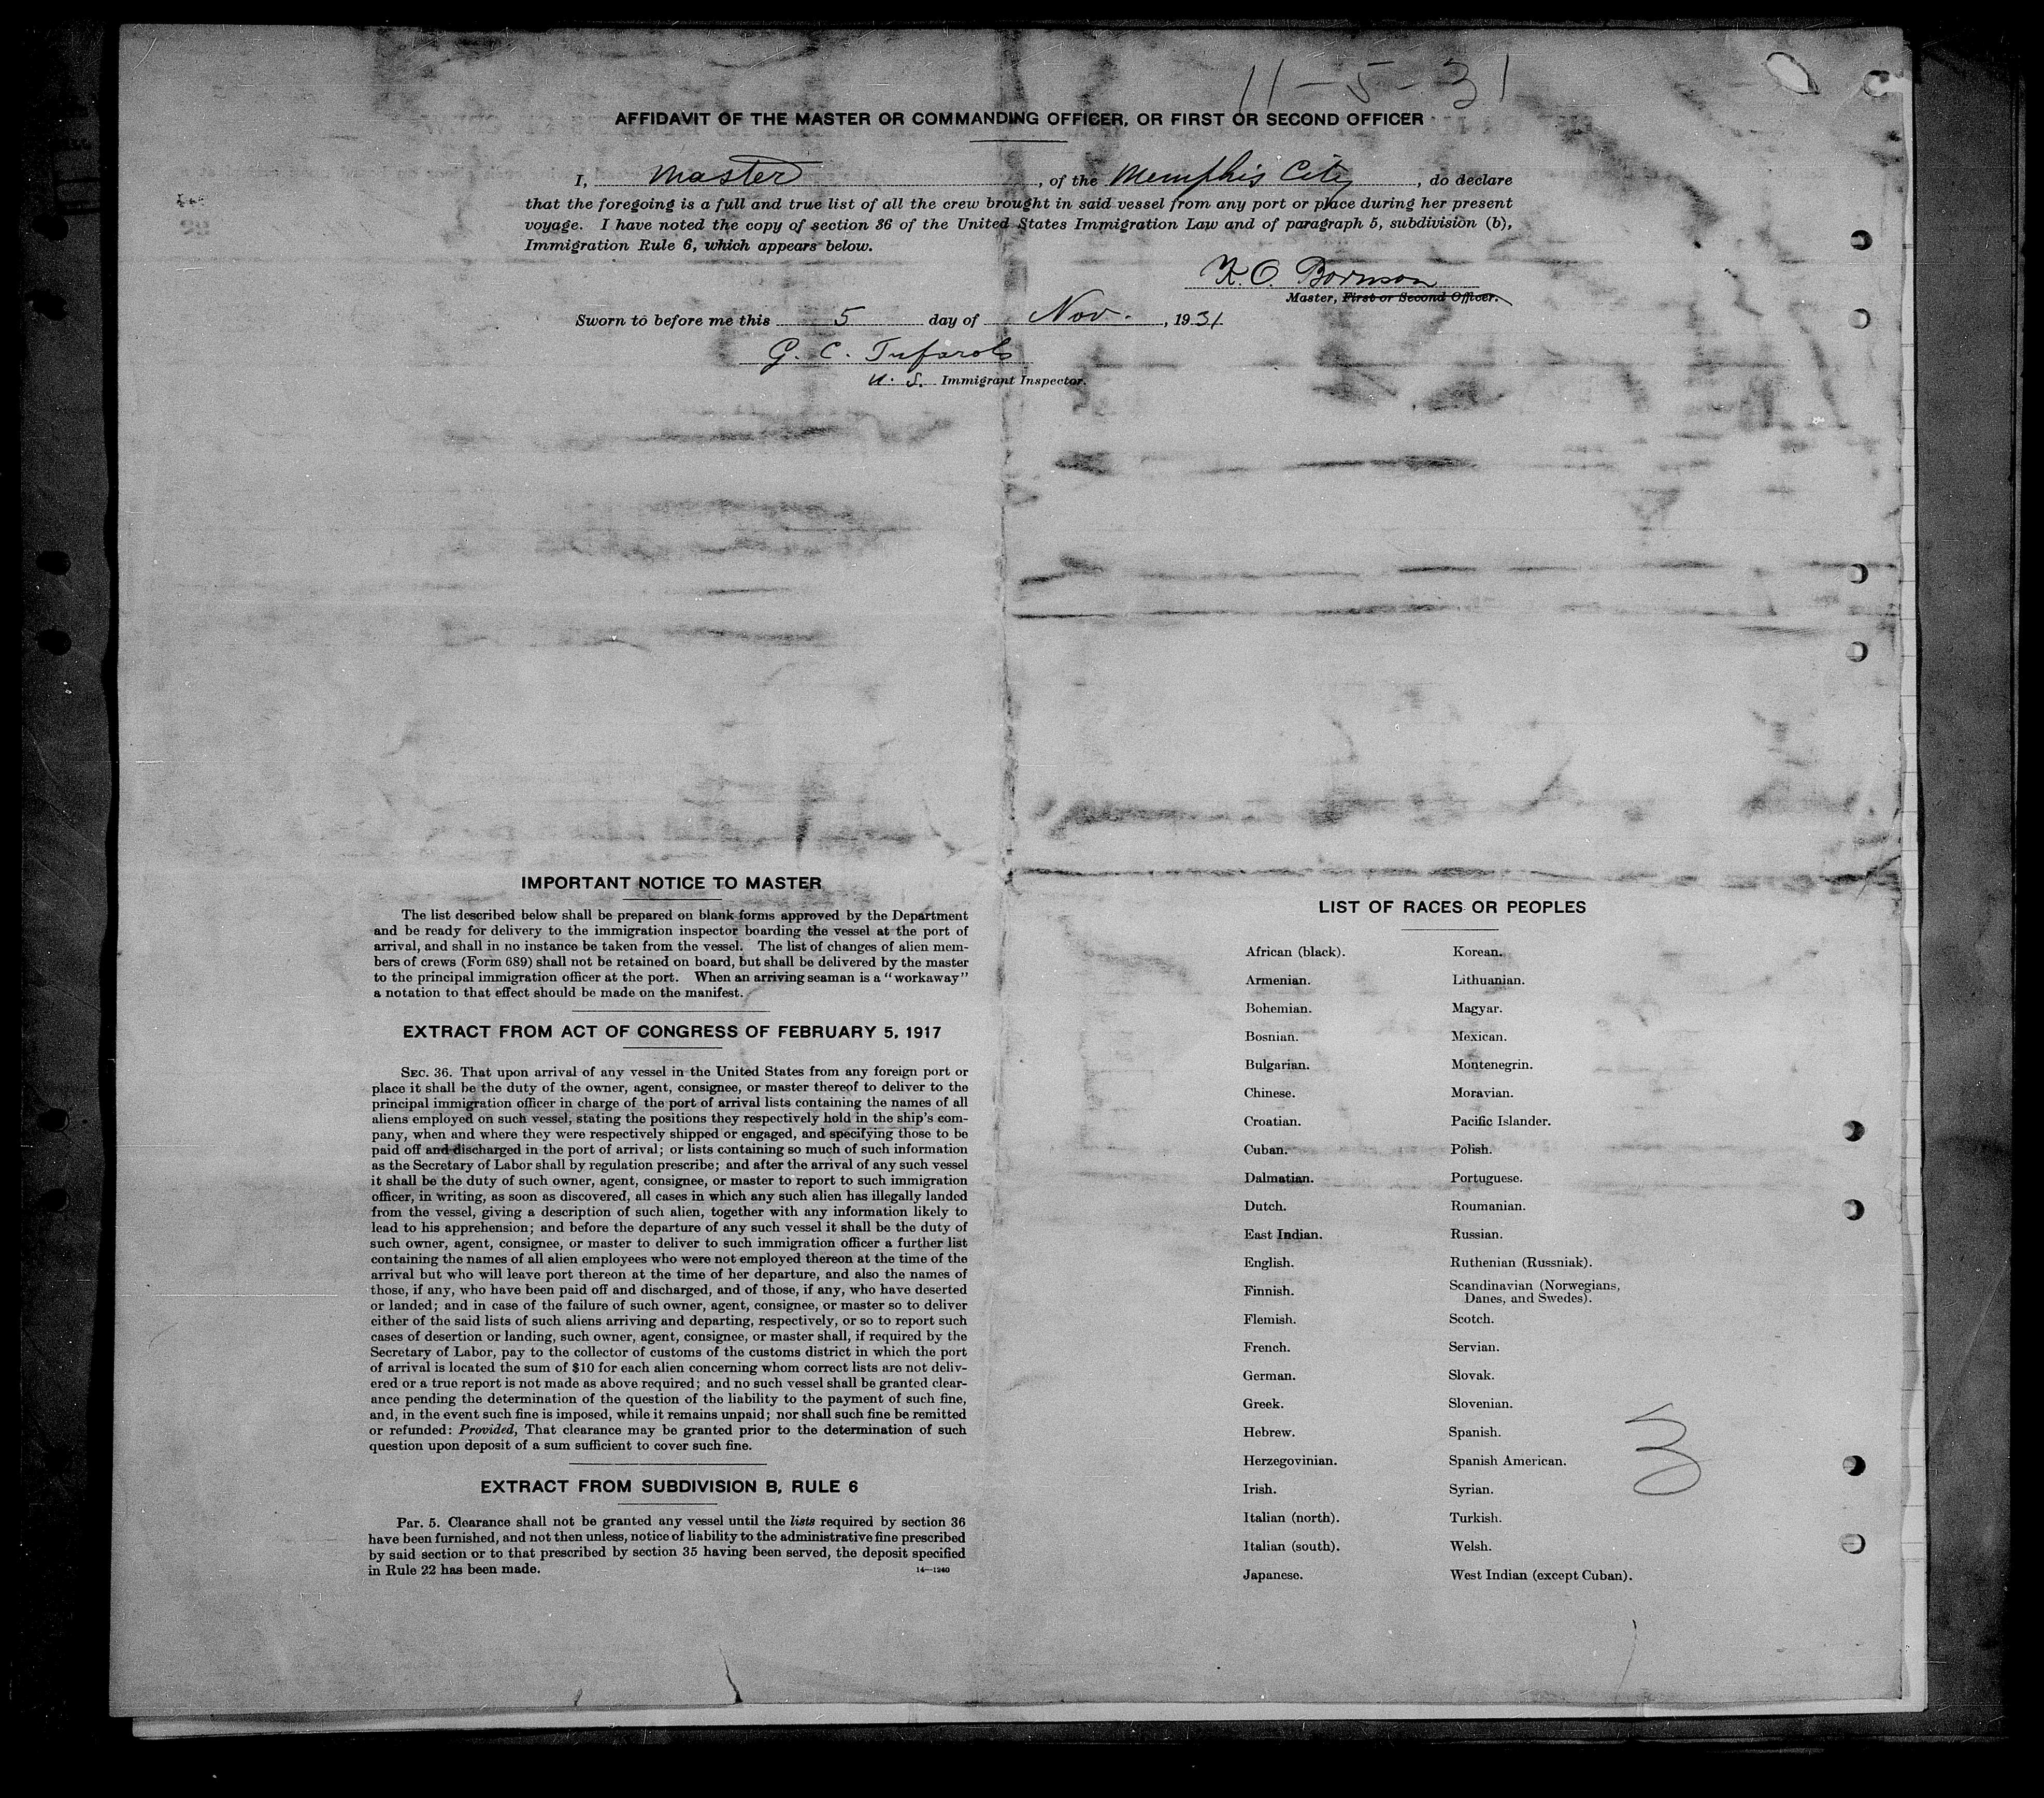 11-5-31
AFFIDAVIT OF THE MASTER OR COMMANDING OFFICER, OR FIRST OR SECOND OFFICER
I, Master, of the Memphis City, do declare
that the foregoing is a full and true list of all the crew brought in said vessel from any port or place during her present
voyage. I have noted the copy of section 36 of the United States Immigration Law and of paragraph 5, subdivision (b),
Immigration Rule 6, which appears below.
K. O. Bornson
Master, First or Second Officer.
Sworn to before me this 5 day of Nov., 1931
G. C.
U. S. Immigrant Inspector.
IMPORTANT NOTICE TO MASTER
The list described below shall be prepared on blank forms approved by the Department
and be ready for delivery to the immigration inspector boarding the vessel at the port of
arrival, and shall in no instance be taken from the vessel. The list of changes of alien mem-
bers of crews (Form 689) shall not be retained on board, but shall be delivered by the master
to the principal immigration officer at the port. When an arriving seaman is a "workaway"
a notation to that effect should be made on the manifest.
EXTRACT FROM ACT OF CONGRESS OF FEBRUARY 5, 1917
SEC. 36. That upon arrival of any vessel in the United States from any foreign port or
place it shall be the duty of the owner, agent, consignee, or master thereof to deliver to the
principal immigration officer in charge of the port of arrival lists containing the names of all
aliens employed on such vessel, stating the positions they respectively hold in the ship's com-
pany, when and where they were respectively shipped or engaged, and specifying those to be
paid off and discharged in the port of arrival; or lists containing so much of such information
as the Secretary of Labor shall by regulation prescribe; and after the arrival of any such vessel
it shall be the duty of such owner, agent, consignee, or master to report to such immigration
officer, in writing, as soon as discovered, all cases in which any such alien has illegally landed
from the vessel, giving a description of such alien, together with any information likely to
lead to his apprehension; and before the departure of any such vessel it shall be the duty of
such owner, agent, consignee, or master to deliver to such immigration officer a further list
containing the names of all alien employees who were not employed thereon at the time of the
arrival but who will leave port thereon at the time of her departure, and also the names of
those, if any, who have been paid off and discharged, and of those, if any, who have deserted
or landed; and in case of the failure of such owner, agent, consignee, or master so to deliver
either of the said lists of such aliens arriving and departing, respectively, or so to report such
cases of desertion or landing, such owner, agent, consignee, or master shall, if required by the
Secretary of Labor, pay to the collector of customs of the customs district in which the port
of arrival is located the sum of $10 for each alien concerning whom correct lists are not deliv-
ered or a true report is not made as above required; and no such vessel shall be granted clear-
ance pending the determination of the question of the liability to the payment of such fine,
and, in the event such fine is imposed, while it remains unpaid; nor shall such fine be remitted
or refunded: Provided, That clearance may be granted prior to the determination of such
question upon deposit of a sum sufficient to cover such fine.
EXTRACT FROM SUBDIVISION B, RULE 6
Par. 5. Clearance shall not be granted any vessel until the lists required by section 36
have been furnished, and not then unless, notice of liability to the administrative fine prescribed
by said section or to that prescribed by section 35 having been served, the deposit specified
in Rule 22 has been made.
14—1240
LIST OF RACES OR PEOPLES
African (black).
Armenian.
Bohemian.
Bosnian.
Bulgarian.
Chinese.
Croatian.
Cuban.
Dalmatian.
Dutch.
East Indian.
English.
Finnish.
Flemish.
French.
German.
Greek.
Hebrew.
Herzegovinian.
Irish.
Italian (north).
Italian (south).
Japanese.
Korean.
Lithuanian.
Magyar.
Mexican.
Montenegrin.
Moravian.
Pacific Islander.
Polish.
Portuguese.
Roumanian.
Russian.
Ruthenian (Russniak).
Scandinavian (Norwegians,
Danes, and Swedes).
Scotch.
Servian.
Slovak.
Slovenian.
Spanish.
Spanish American.
Syrian.
Turkish.
Welsh.
West Indian (except Cuban).
3